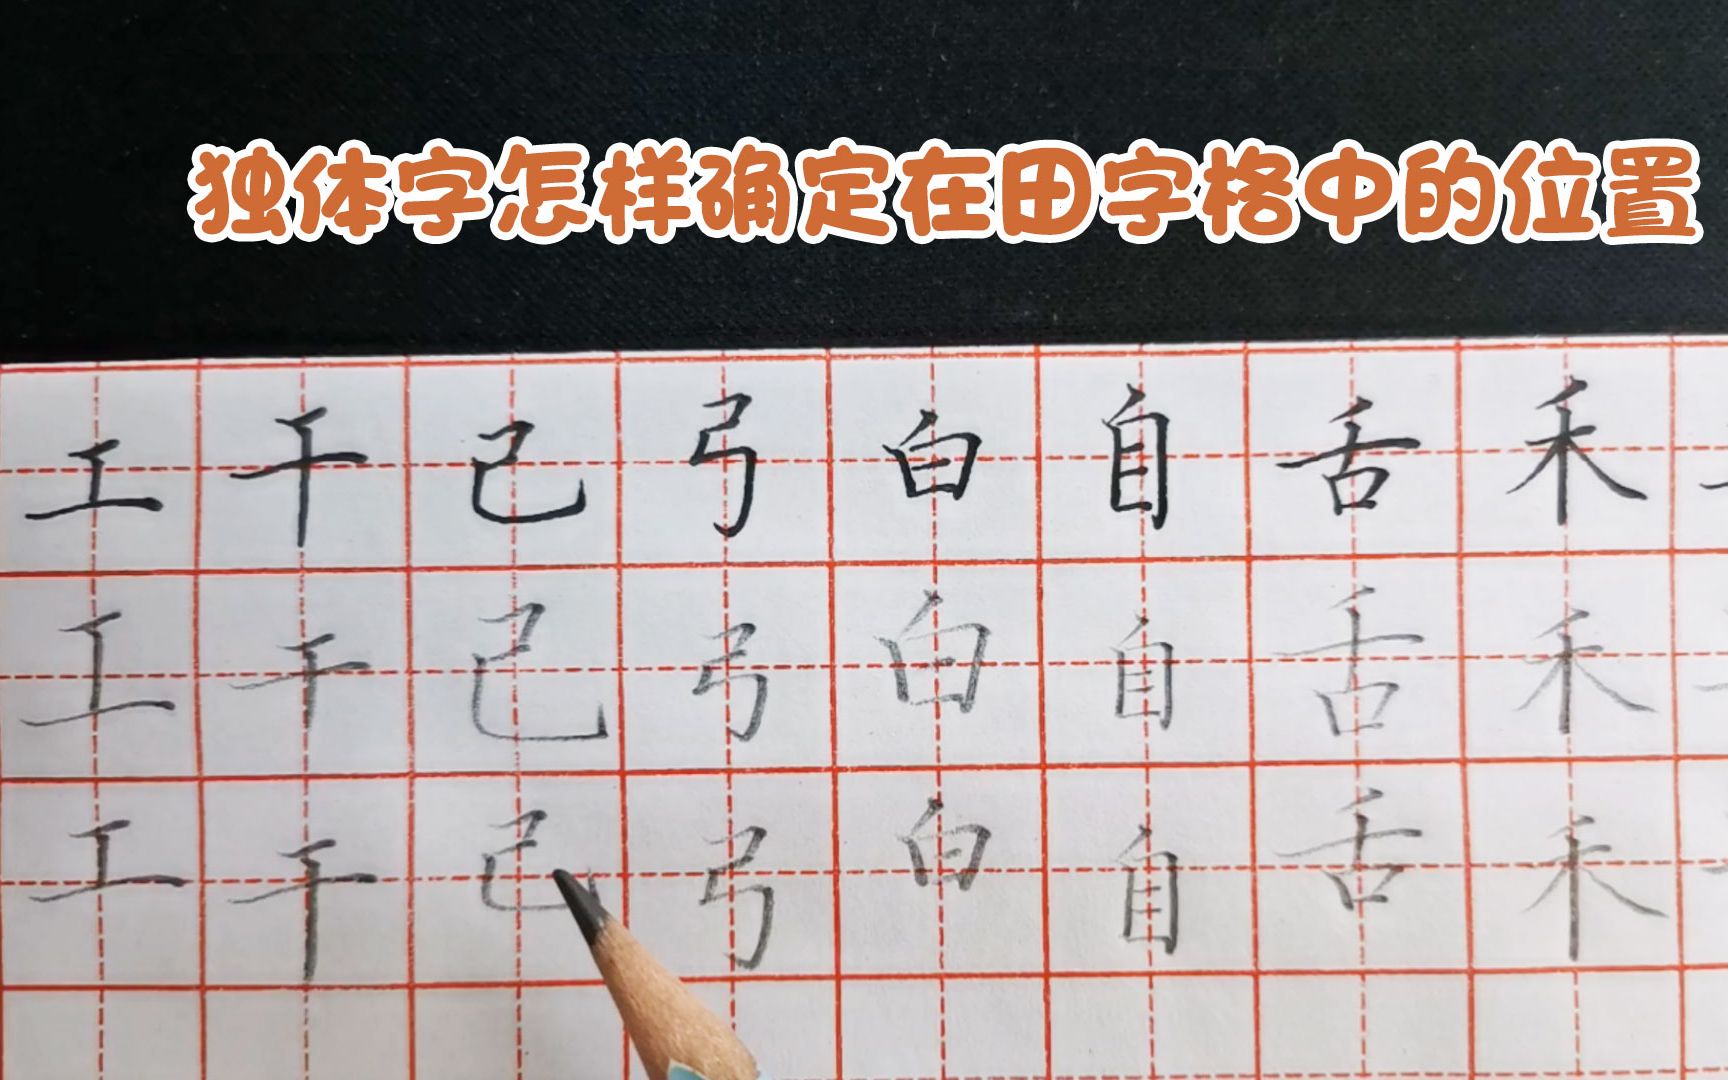 独体字怎样确定在田字格中的位置
工干己弓白自舌禾
工干己弓白自舌禾
工干己弓白自舌禾